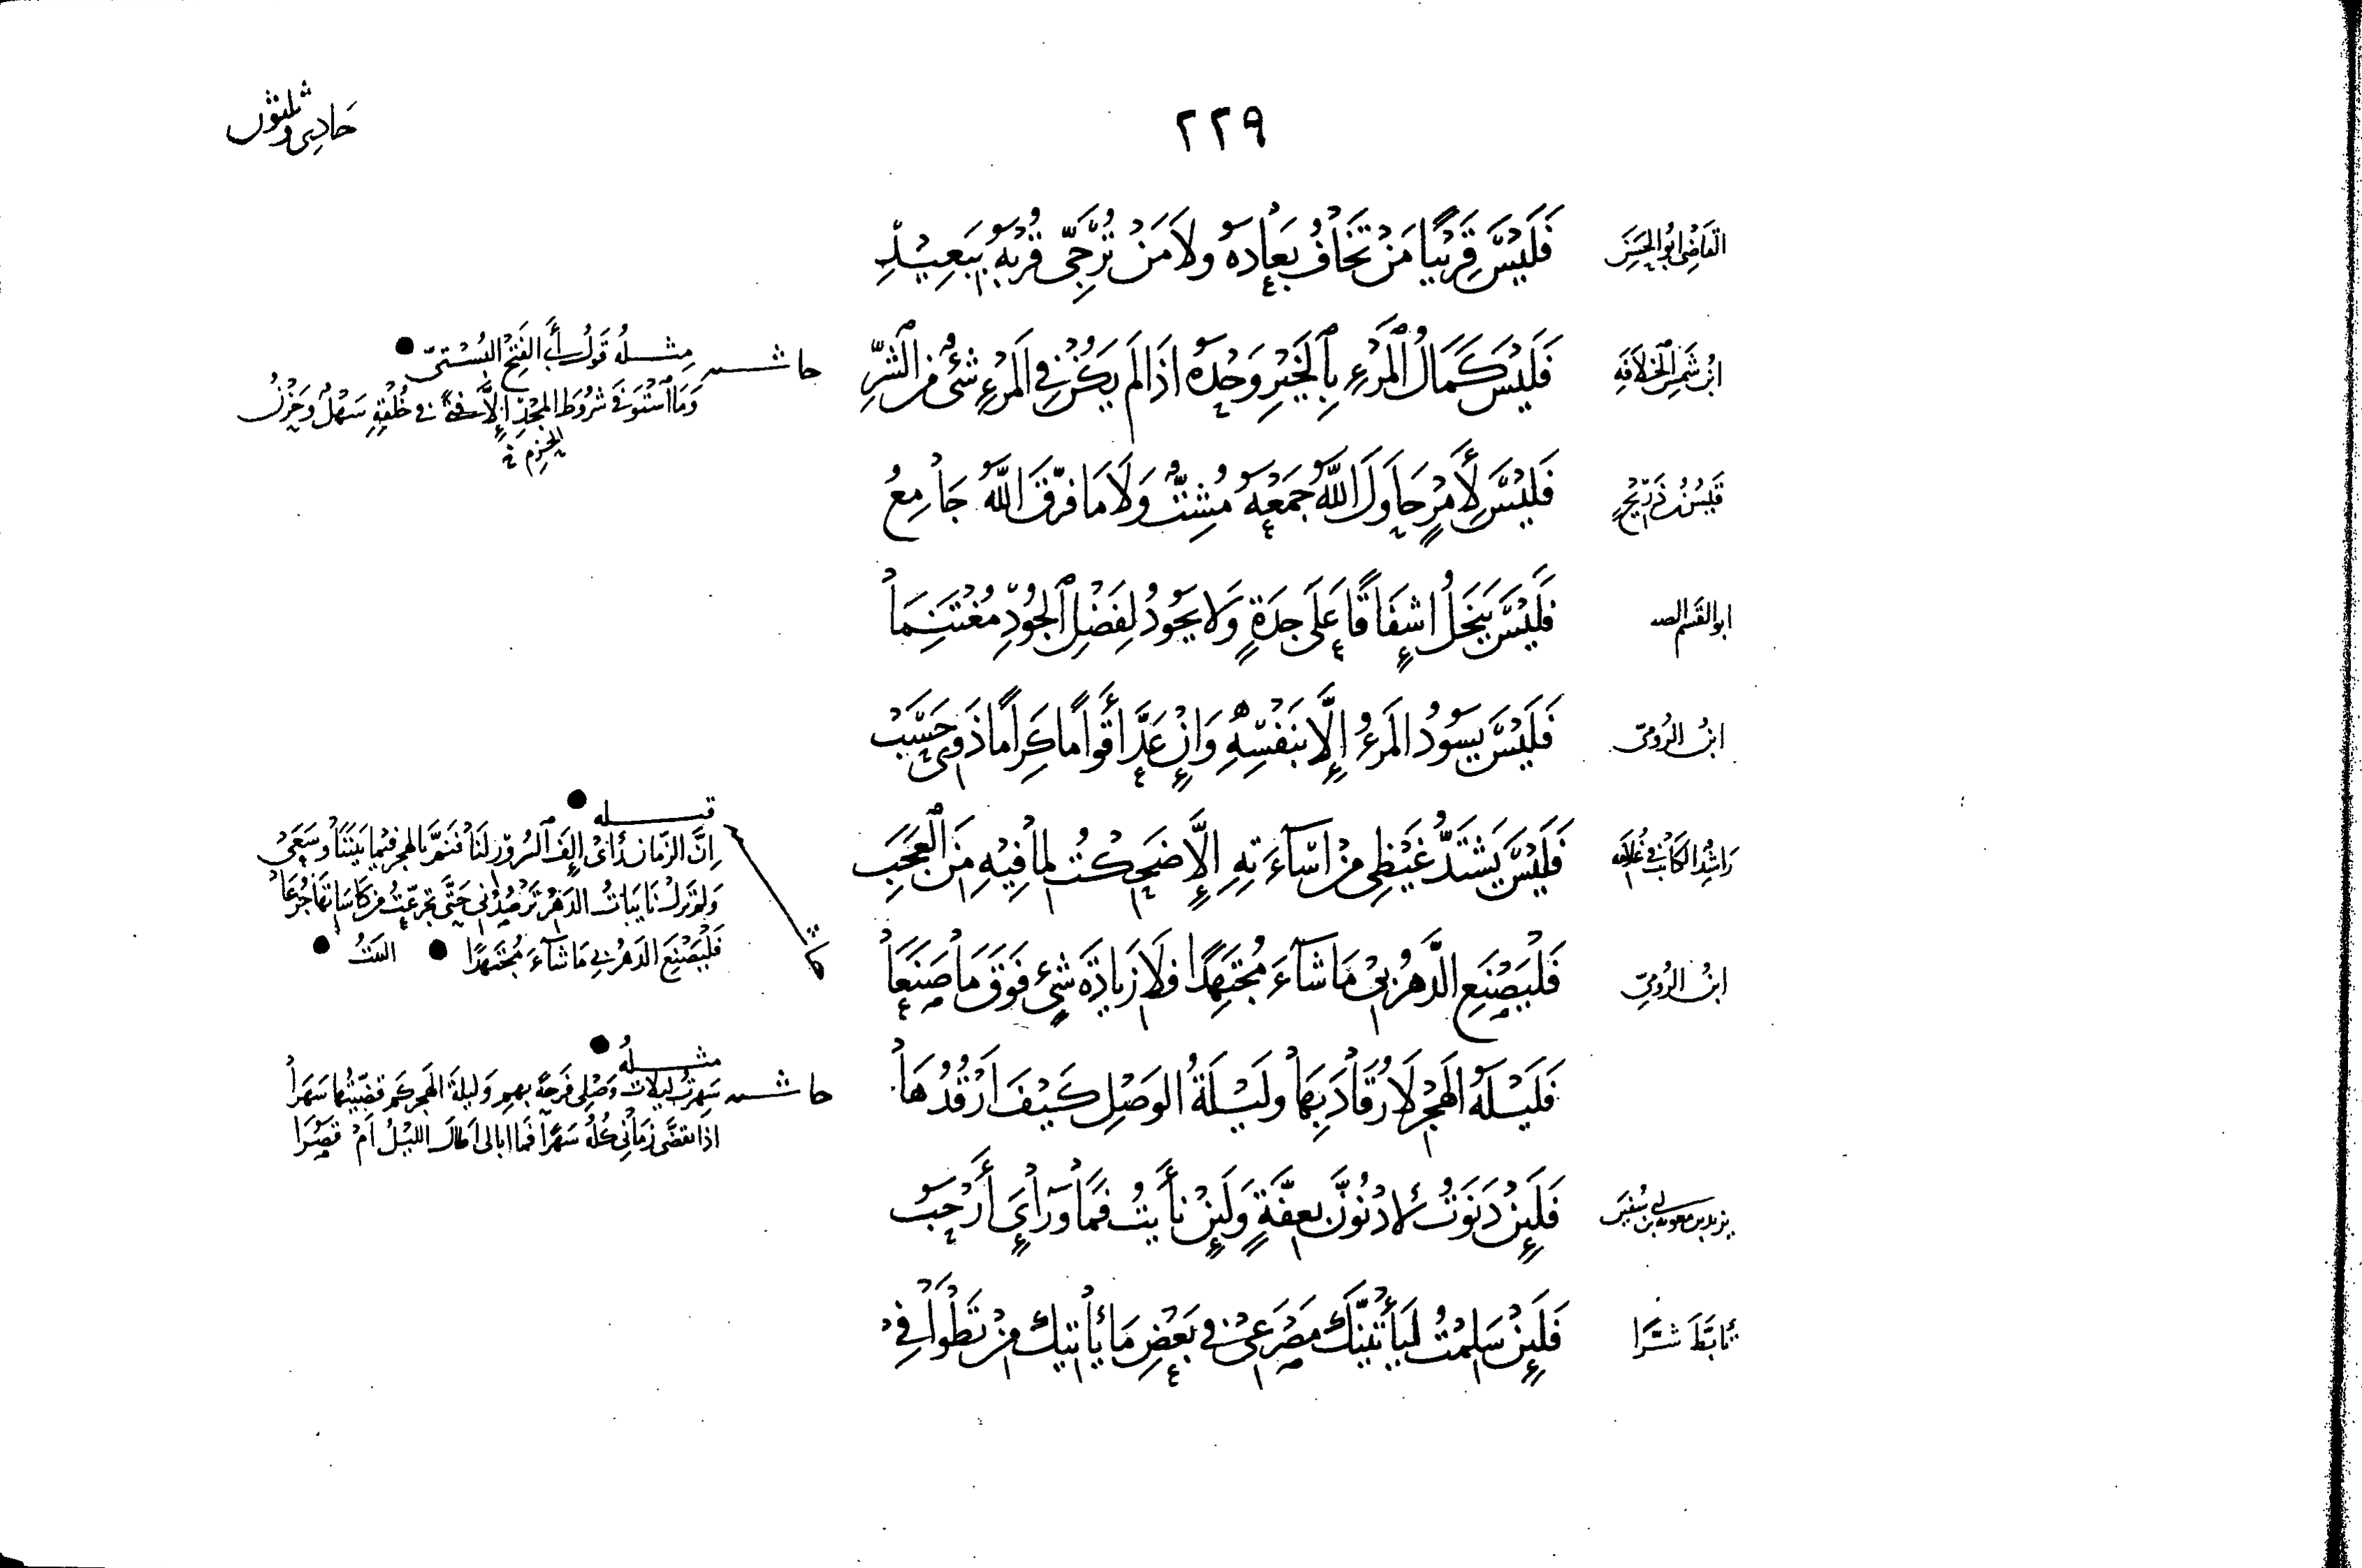 ٢٢٩
حادي وثلثون
القاضى ابو الحسن
فَلَيْسَ قَرِيْبًا مَنْ تَخَافُ بِعَادَهُ وَلاَ مَنْ تُرَجَّى قُرْبُهُ بِبَعِيْدِ
ابن شمس الخلافه
فَلَيْسَ كَمَالُ الْمَرْءِ بِالْخَيْرِ وَحْدَهُ اذَا لَم يَكُنْ فِي الْمَرْءِ شَىْءٌ مِنَ الشَّرِّ
حاشيه مثله قَولُ أبى الفتح البُسْتىّ
وَمَا اسْتَوفَى شُرُوطَ المَجْدِ إِلاَّ فتىً في خُلْقِهِ سَهْلٌ وَحَزْنُ
الحزم
قَيسُ بنُ ذَريحٍ
فَلَيْسَ لأَمْرٍ حَاوَلَ اللَّهُ جَمْعَهُ مُشِتٌّ وَلَا مَا فَرَّقَ اللَّهُ جَامِعُ
ابو القسم الصـ
فَلَيْسَ يَبْخَلُ اشْفَاقًا عَلَى جِدَةٍ وَلا يَجُودُ لِفَضْلِ الجُوْدِ مُغْتَنِمَا
ابنُ الرُّومىّ
فَلَيْسَ يَسُوْدُ المَرءُ إِلَّا بِنَفْسِهِ وَانْ عَدَّ أَقْوَامًا كِرَامًا ذَوِى حَسَبْ
رَاشِدُ الكاتب في غُلامه
فَلَيْسَ يَشْتَدُّ غَيْظِى مِنْ اسَآءَتِهِ إِلاَّ ضَحِكْتُ لِمَا فِيْهِ مِنَ الْعَجَبِ
قبله
اِنَّ الزَّمان رَأى إِلفَ السُّرُوْرِ لَنَا فَنَمَّ بالهجر فيما بَيْنَنَا وَسَعَى
وَلم تَزل نايباتُ الدّهر تَرْصُدُنِى حَتَّى تجرَّعتُ من كَاسَاتها جُرَعَا
فَلْيَصْنَعِ الدَهرُ بِي مَا شَآءَ مُجْتَهِدًا البيت
ابنُ الرُّومىّ
فَلْيَصْنَعِ الدَّهْرُ بِىْ مَا شَآءَ مُجْتَهِدًا فَلَا زِيادَةَ شَىْءٍ فَوْقَ مَا صَنَعَا
فَلَيْلَةُ الهَجْرِ لَا رُقَادَ بِهَا وَلَيْلَةُ الوَصْلِ كَيْفَ ارْقُدُهَا
حاشيه مثله
سَهِرتُ ليلاتِ وَصْلِى فَرحةً بهمِ وَليلةُ الهَجر كم قضَّيتُها سَهَرَا
اذا تقضَّى زَمَانى كُلُّهُ سَهَرًا فَما ابالى اطَالَ اللَّيْلُ اَمْ قَصُرَا
يزيد بن معويه بن ابى سفين
فَلَئِنْ دَنَوتُ لأَدْنُوَنَّ بِعِفَّةٍ وَلَئِنْ نَأَيتُ فَمَا وَرَائِى أَرْحَبُ
تأبّط شرّا
فَلَئِنْ سَلِمْتُ لَيَأتِيَنَّكَ مَصْرَعِىْ فِى بَعْضِ مَا يَأتِيكَ مِنْ تَطْوَافِى